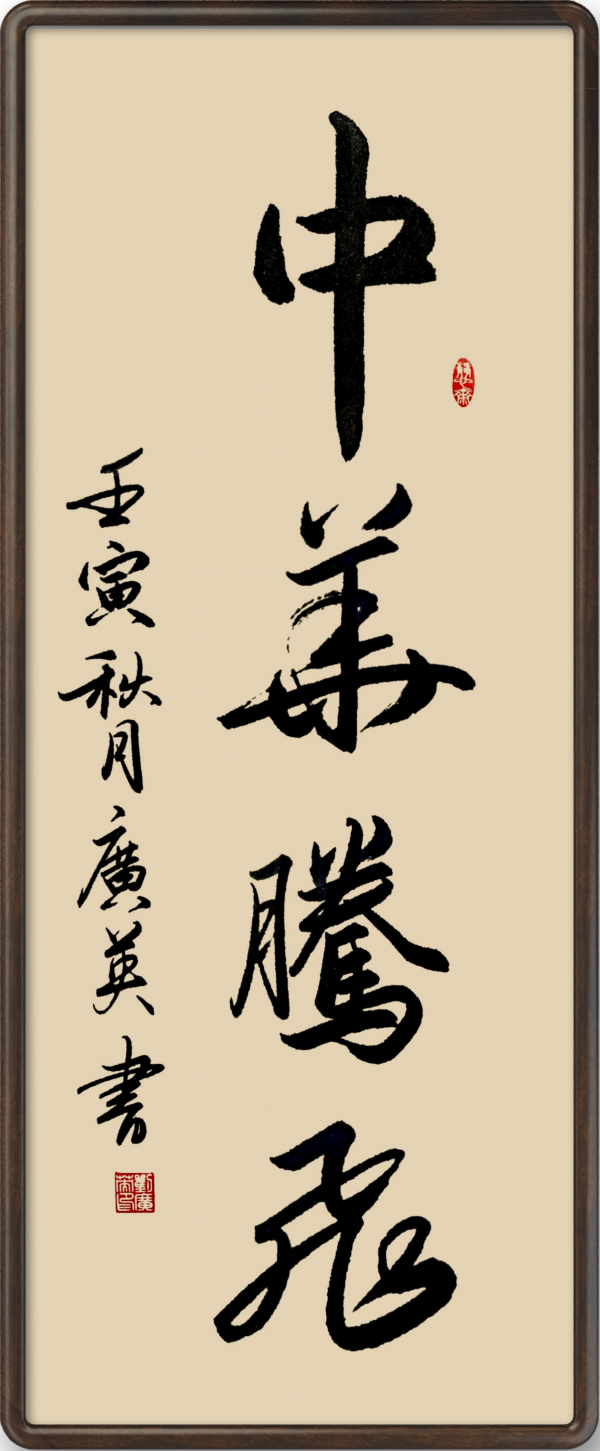 中華騰飛
壬寅秋月廣英書
劉廣英印